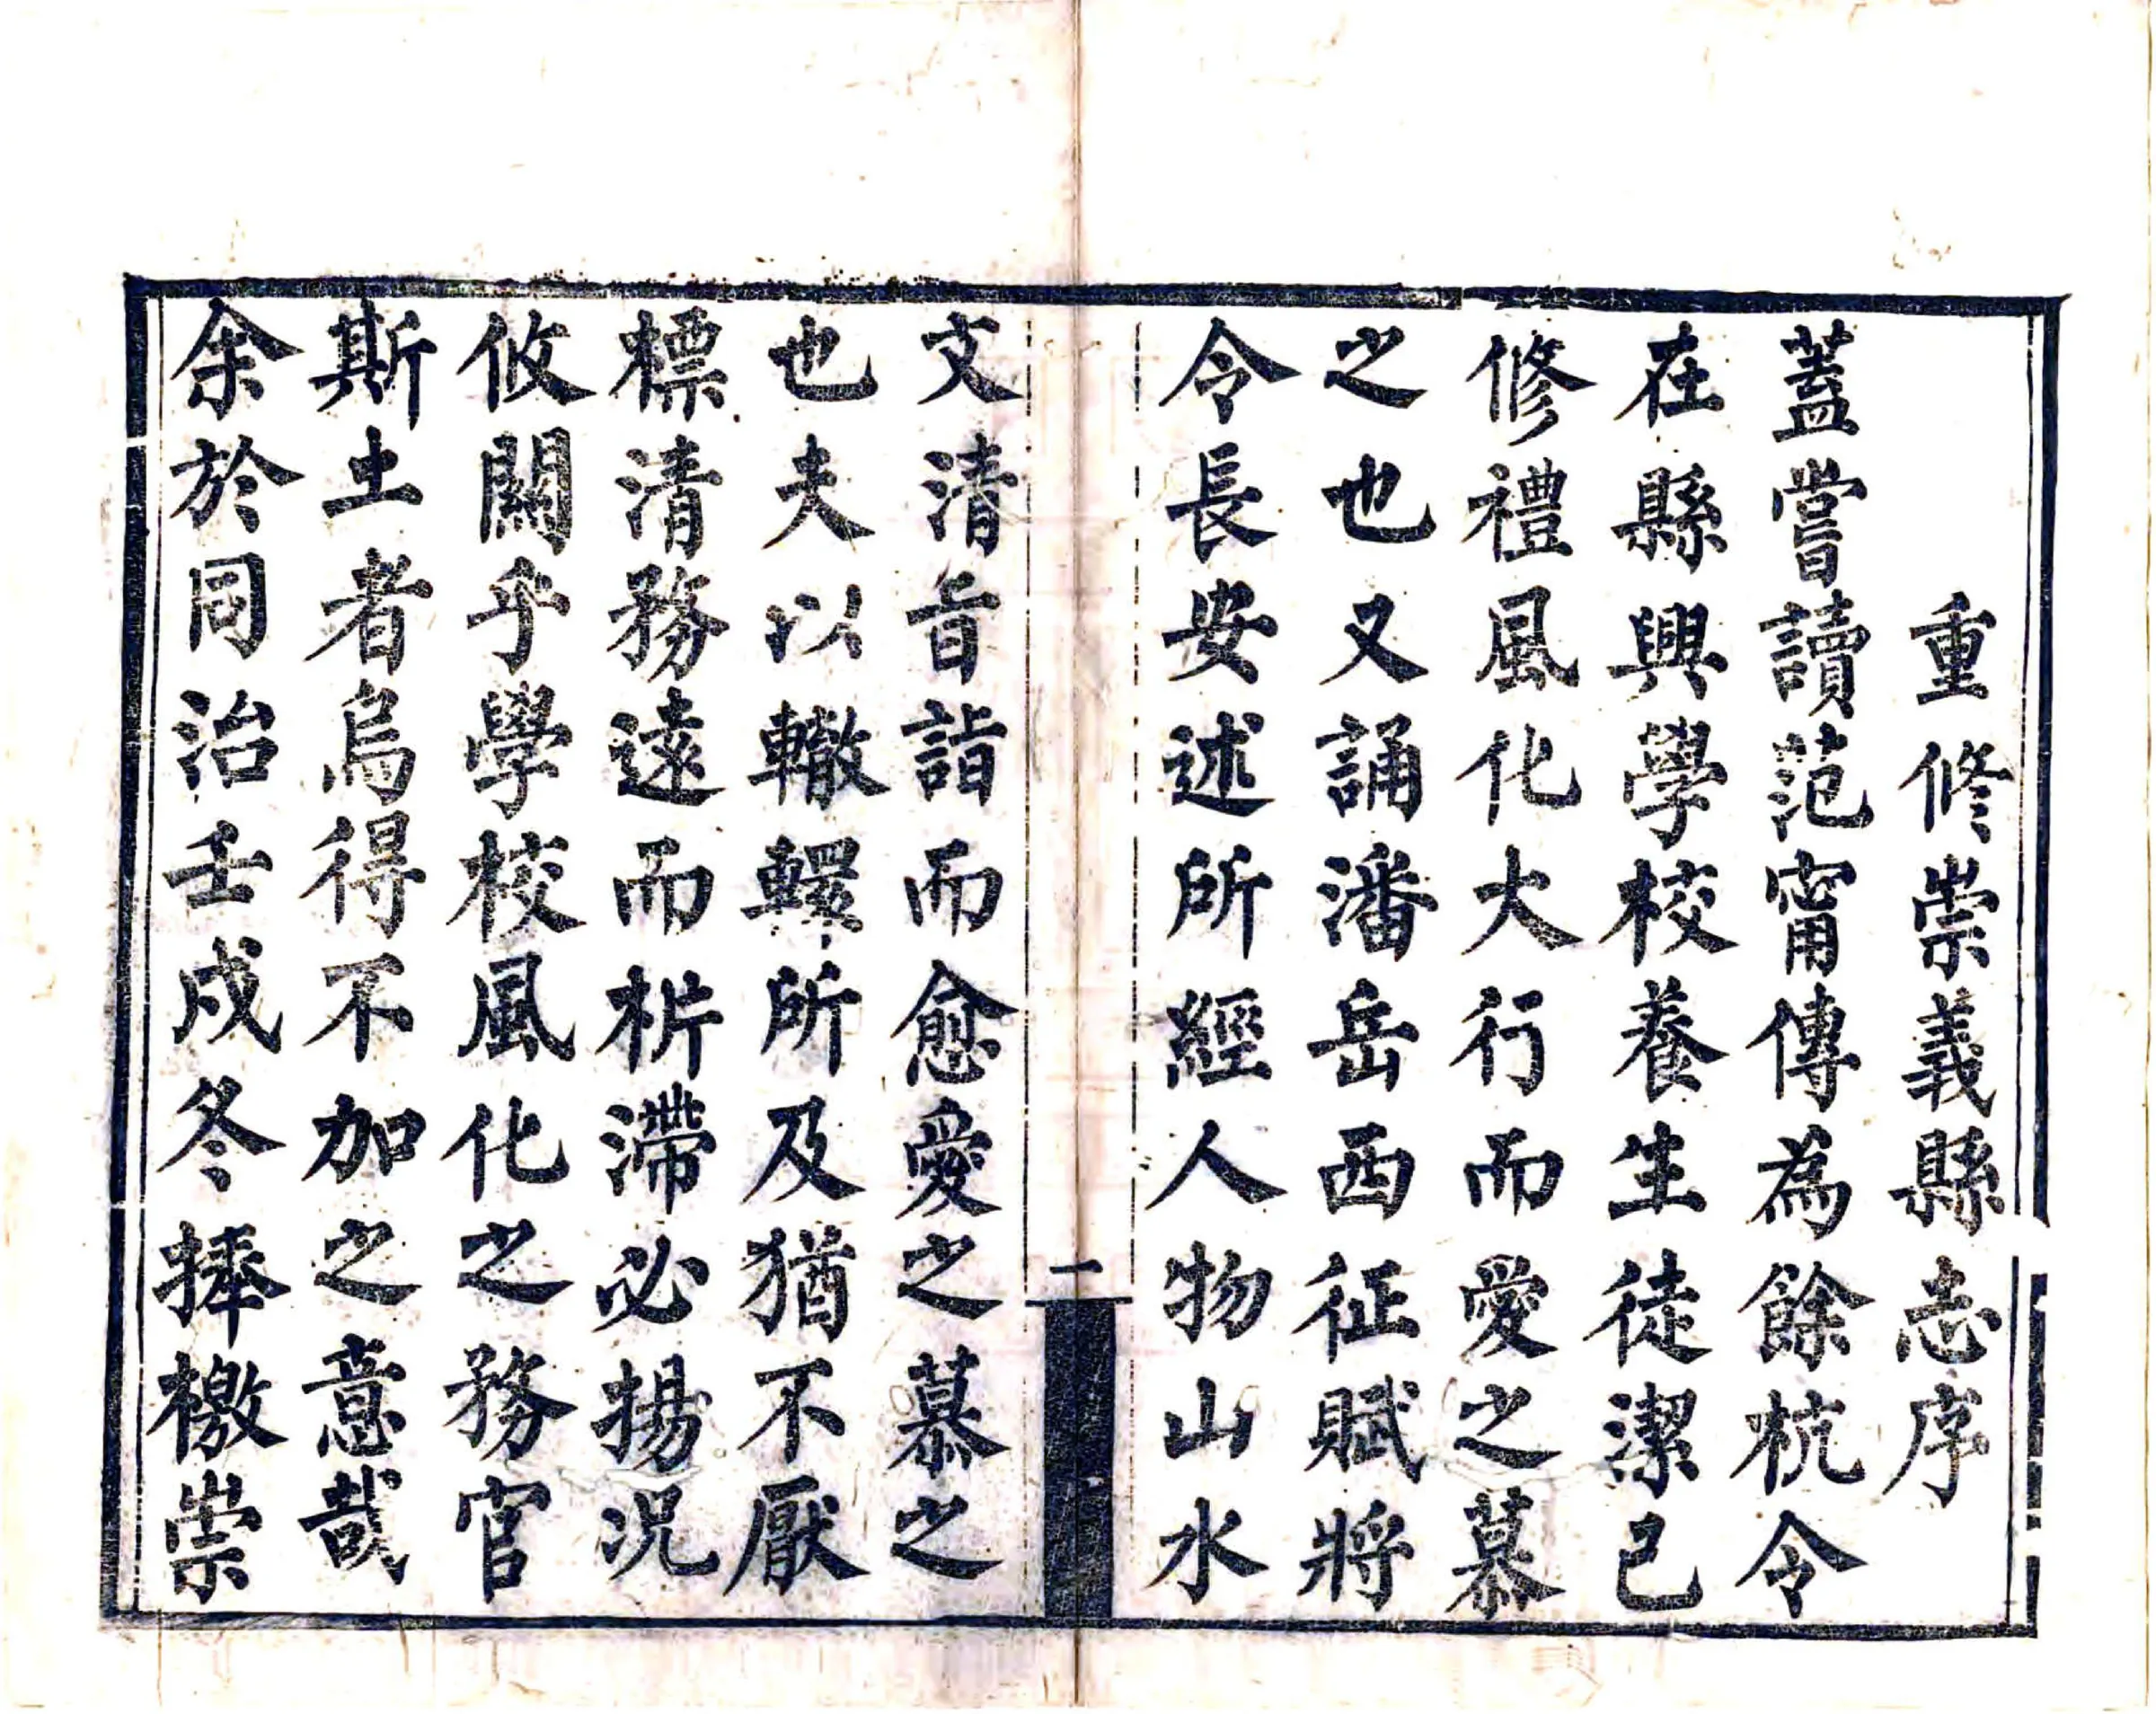 重修崇義縣志序
蓋嘗讀范甯傳為餘杭令
在縣興學校養生徒潔己
修禮風化大行而愛之慕
之也又誦潘岳西征賦將
令長安述所經人物山水
一
文清旨詣而愈愛之慕之
也夫以轍轅所及猶不厭
標清務遠而析滯必揚況
攸關乎學校風化之務官
斯土者烏得不加之意哉
余於同治壬戌冬捧檄崇